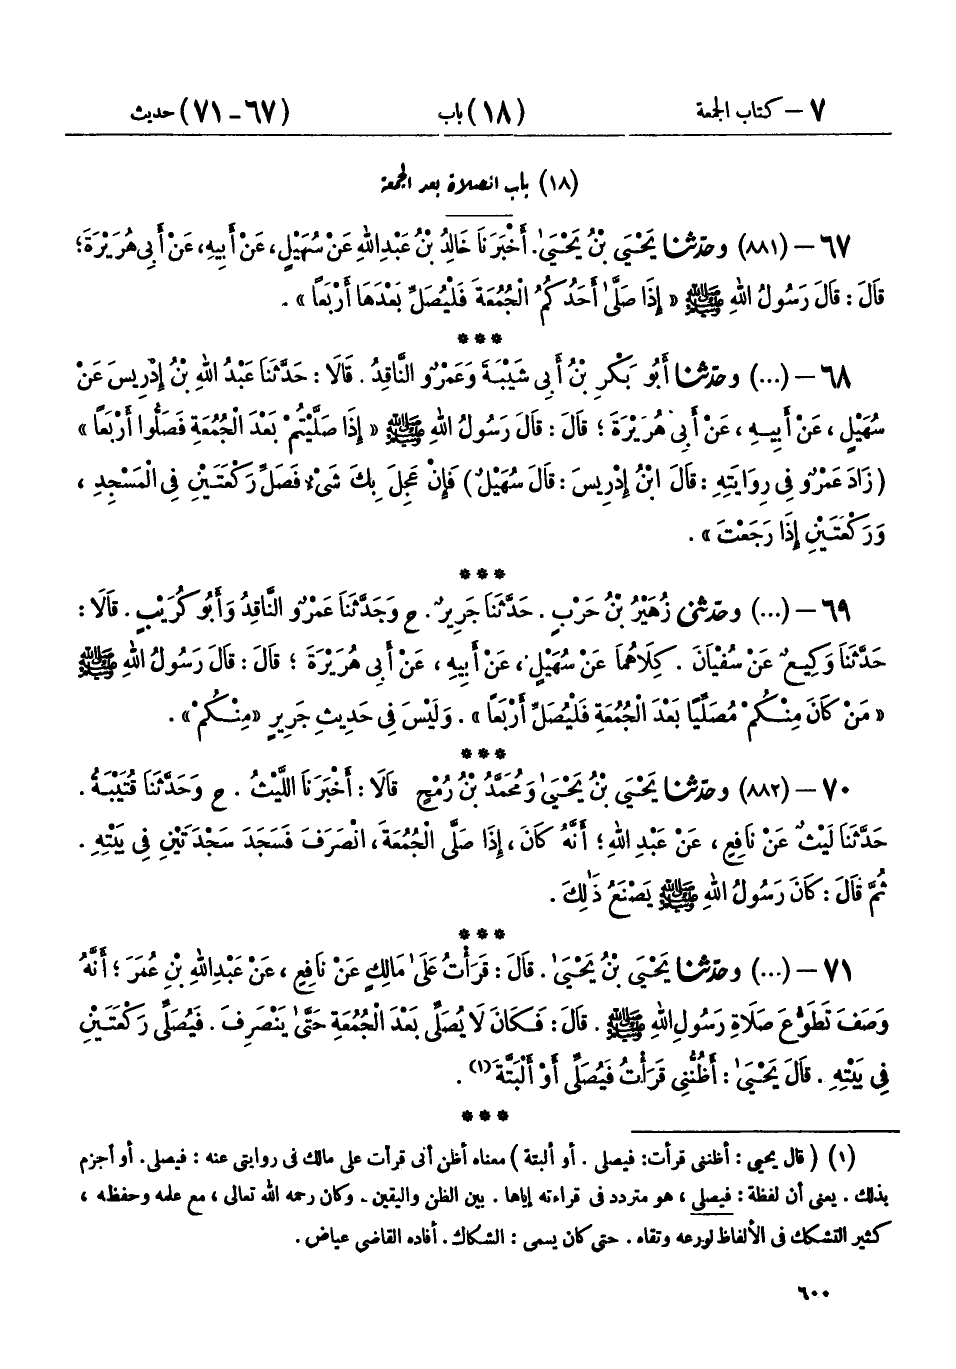 ٧ – كتاب الجمعة (١٨) باب (٦٧ - ٧١) حديث
(١٨) باب الصلاة بعد الجمعة
٦٧ – (٨٨١) وحدّثنا يَحْيَى بْنُ يَحْيَىٰ. أَخْبَرَنَا خَالِدُ بْنُ عَبْدِاللهِ عَنْ سُهَيْلٍ، عَنْ أَبِيهِ، عَنْ أَبِي هُرَيْرَةَ؛
قَالَ : قَالَ رَسُولُ اللهِ ﷺ « إِذَا صَلَّىٰ أَحَدُكُمُ الْجُمُعَةَ فَلْيُصَلِّ بَعْدَهَا أَرْبَعاً » .
***
٦٨ – (...) وحدّثنا أَبُو بَكْرِ بْنُ أَبِي شَيْبَةَ وَعَمْرٌو النَّاقِدُ . قَالَا : حَدَّثَنَا عَبْدُ اللهِ بْنُ إِدْرِيسَ عَنْ
سُهَيْلٍ ، عَنْ أَبِيهِ ، عَنْ أَبِي هُرَيْرَةَ ؛ قَالَ : قَالَ رَسُولُ اللهِ ﷺ « إِذَا صَلَّيْتُمْ بَعْدَ الْجُمُعَةِ فَصَلُّوا أَرْبَعاً »
( زَادَ عَمْرٌو فِي رِوَايَتِهِ : قَالَ ابْنُ إِدْرِيسَ : قَالَ سُهَيْلٌ ) فَإِنْ عَجِلَ بِكَ شَيْءٌ فَصَلِّ رَكْعَتَيْنِ فِي الْمَسْجِدِ ،
وَرَكْعَتَيْنِ إِذَا رَجَعْتَ » .
***
٦٩ – (...) وحدّثني زُهَيْرُ بْنُ حَرْبٍ . حَدَّثَنَا جَرِيرٌ . ح وَحَدَّثَنَا عَمْرٌو النَّاقِدُ وَأَبُو كُرَيْبٍ . قَالَا :
حَدَّثَنَا وَكِيعٌ عَنْ سُفْيَانَ . كِلَاهُمَا عَنْ سُهَيْلٍ ، عَنْ أَبِيهِ ، عَنْ أَبِي هُرَيْرَةَ ؛ قَالَ : قَالَ رَسُولُ اللهِ ﷺ
« مَنْ كَانَ مِنْكُمْ مُصَلِّيًا بَعْدَ الْجُمُعَةِ فَلْيُصَلِّ أَرْبَعاً » . وَلَيْسَ فِي حَدِيثِ جَرِيرٍ «مِنْكُمْ» .
***
٧٠ – (٨٨٢) وحدّثنا يَحْيَى بْنُ يَحْيَىٰ وَمُحَمَّدُ بْنُ رُمْحٍ قَالَا : أَخْبَرَنَا اللَّيْثُ . ح وَحَدَّثَنَا قُتَيْبَةُ .
حَدَّثَنَا لَيْثٌ عَنْ نَافِعٍ ، عَنْ عَبْدِ اللهِ ؛ أَنَّهُ كَانَ ، إِذَا صَلَّى الْجُمُعَةَ ، انْصَرَفَ فَسَجَدَ سَجْدَتَيْنِ فِي بَيْتِهِ .
ثُمَّ قَالَ : كَانَ رَسُولُ اللهِ ﷺ يَصْنَعُ ذَٰلِكَ .
***
٧١ – (...) وحدّثنا يَحْيَى بْنُ يَحْيَىٰ . قَالَ : قَرَأْتُ عَلَىٰ مَالِكٍ عَنْ نَافِعٍ ، عَنْ عَبْدِاللهِ بْنِ عُمَرَ ؛ أَنَّهُ
وَصَفَ تَطَوُّعَ صَلَاةِ رَسُولِ اللهِ ﷺ . قَالَ : فَكَانَ لَا يُصَلِّي بَعْدَ الْجُمُعَةِ حَتَّىٰ يَنْصَرِفَ . فَيُصَلِّي رَكْعَتَيْنِ
فِي بَيْتِهِ . قَالَ يَحْيَىٰ : أَظُنُّنِي قَرَأْتُ فَيُصَلِّي أَوْ أَلْبَتَّةَ (١) .
***
(١) ( قال يحيى : أظننى قرأت: فيصلى . أو ألبتة ) معناه أظن أنى قرأت على مالك فى روايتى عنه : فيصلى. أو أجزم
بذلك . يعنى أن لفظة : فيصلى ، هو متردد فى قراءته إياها . بين الظن واليقين . وكان رحمه الله تعالى ، مع علمه وحفظه ،
كثير التشكك فى الألفاظ لورعه وتقاه . حتى كان يسمى : الشكاك . أفاده القاضي عياض .
٦٠٠